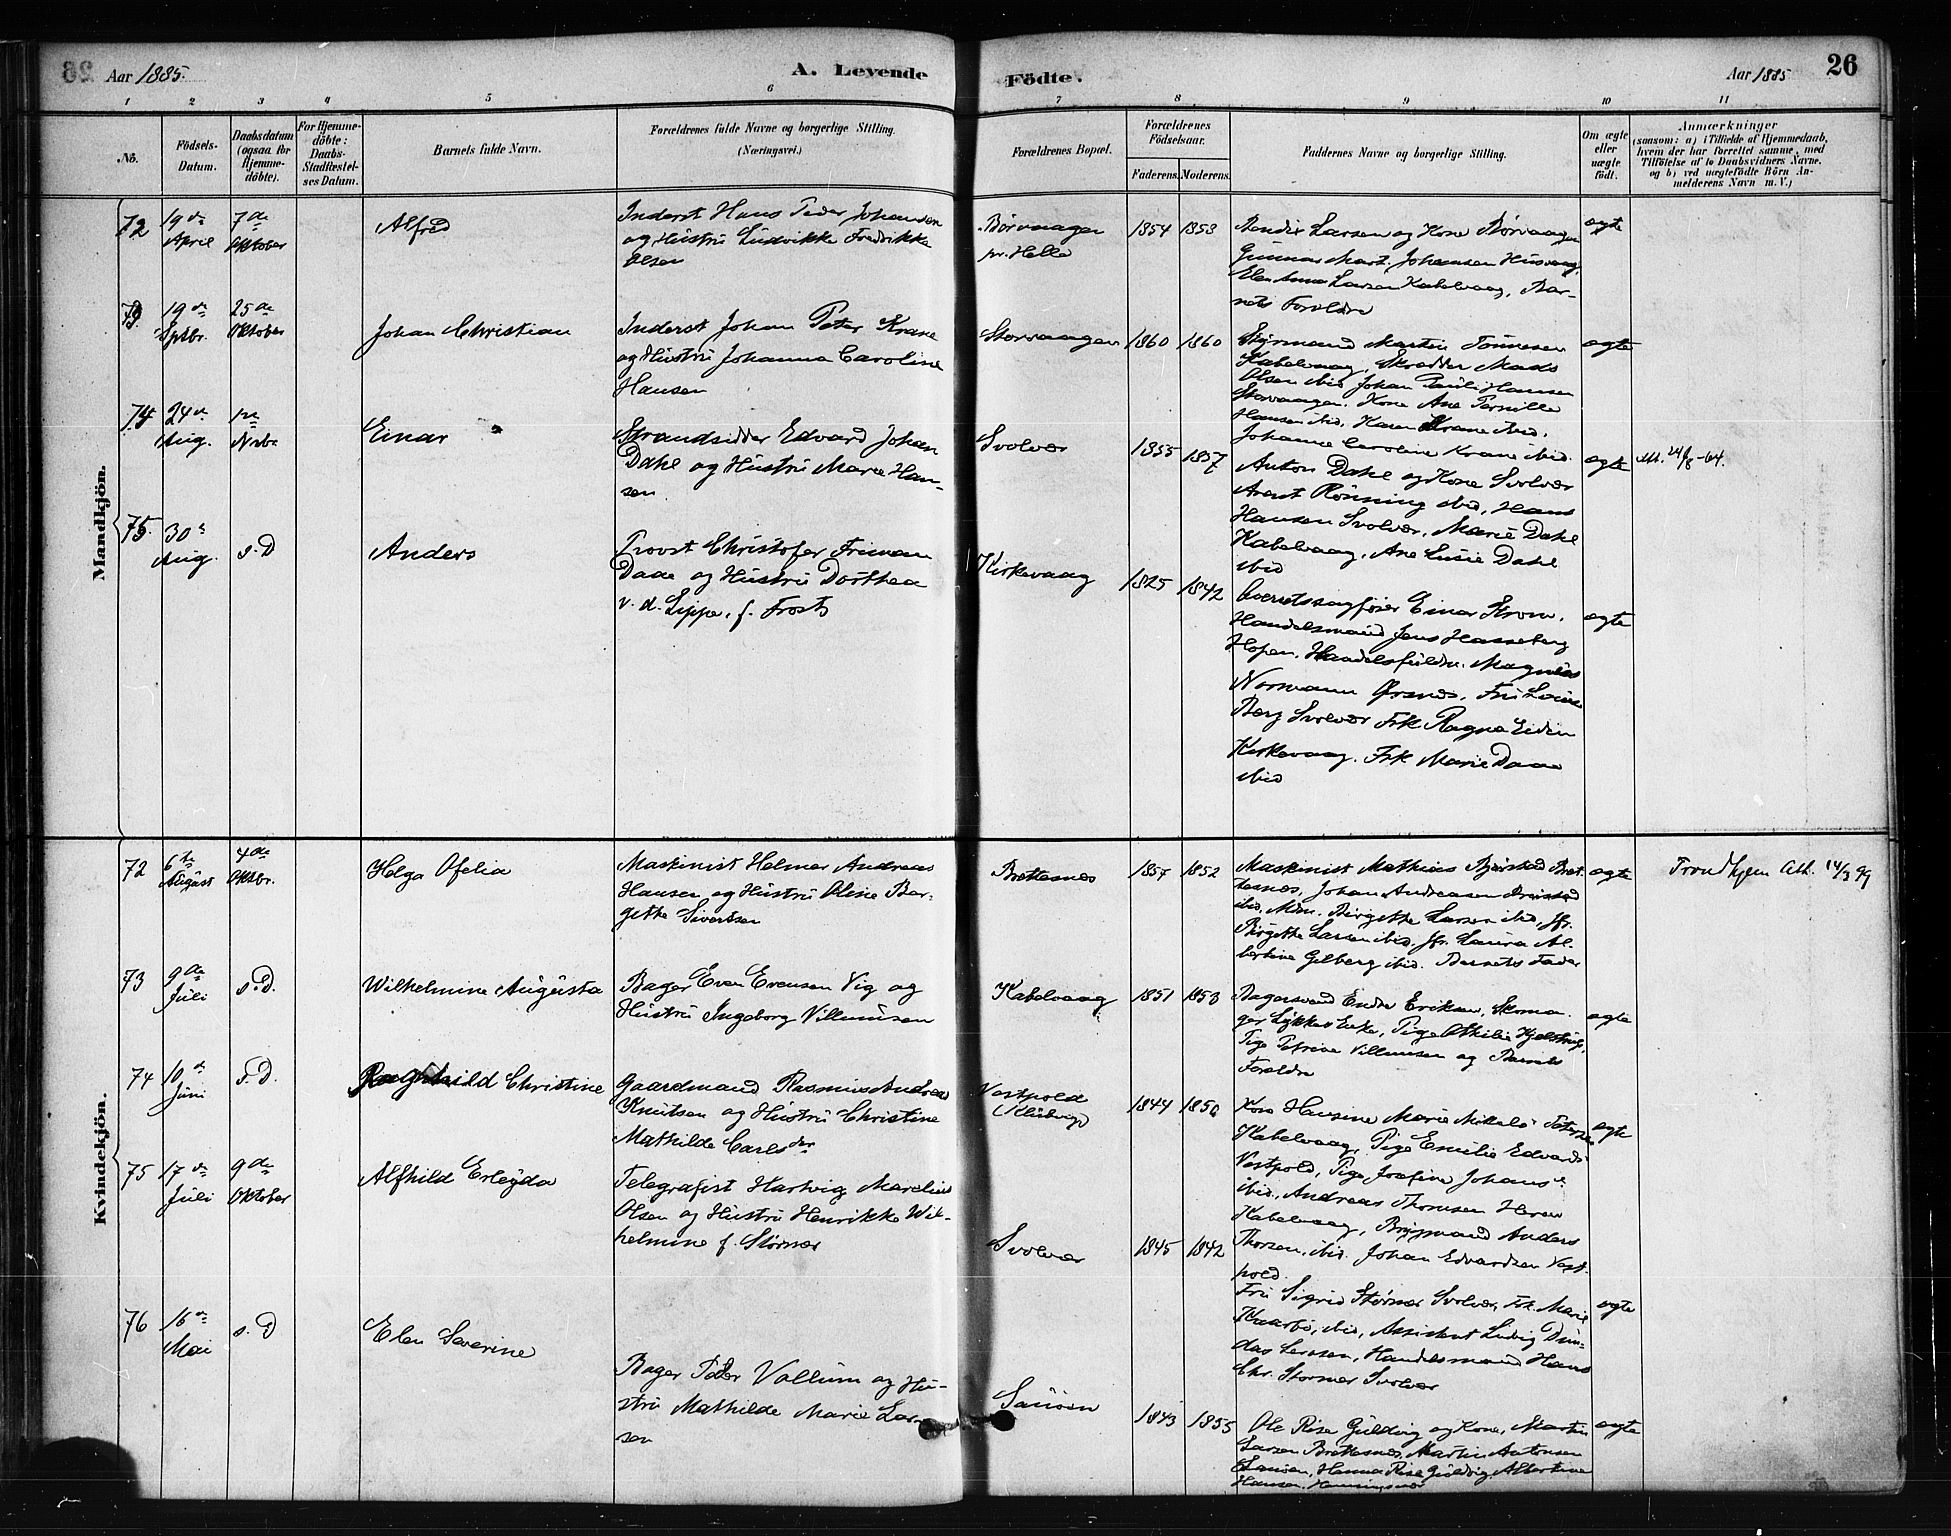 Aar 1885.
A. Levende
Födte.
Aar 1885
26
1 2 3 4 5 6 7 8 9 10 11
No.
Födsels-Datum.
Daabsdatum (ogsaa for Hjemme-döbte).
For Hjemme-döbte: Daabs-Stadfæstel-ses Datum.
Barnets fulde Navn.
Forældrenes fulde Navne og borgerlige Stilling.
(Næringsvei.)
Forældrenes Bopæl.
Forældrenes Födselsaar.
Faderens. Moderens.
Faddernes Navne og borgerlige Stilling.
Om ægte eller uægte födt.
Anmærkninger
(saasom: a) i Tilfælde af Hjemmedaab,
hvem der har forrettet samme, med
Tilföielse af to Daabsvidners Navne.
og b) ved uægtefödte Börn An-
melderens Navn m. V.)
Mandkjön.
72
19de April
7de Oktober
Alfred
Inderst Hans Peder Johansen
og Hustru Ludvikke Fredrikke
Olsen
Børvaagen
pr. Helle
1854 1858
Larsen og Kone Børvaagen
Gunnar Mart. Johansen Husvaag
Elen Anna Larsen Kabelvaag, Bar-
nets Forældre
ægte
73
19de Septbr.
25de Oktober
Johan Christian
Inderst Johan Peter Krane
og Hustru Johanna Caroline
Hansen
Storvaagen
1860 1860
Styrmand Martin Tønnesen
Kabelvaag, Skrædder Mads
Olsen ibid, Johan Pauli Hansen
Storvaagen. Kone Ane Pernille
Hansen ibid, Karen Krane ibid.
Johanne Caroline Krane ibid.
ægte
74
24de Aug.
Nvbr
Einar
Strandsidder Edvard Johan
Dahl og Hustru Marie Han-
sen
Svolvær
1855 1857
Anton Dahl og Kone Svolvær
Arent Rønning ibid, Hans
Hansen Svolvær, Marie Dahl
Kabelvaag, Ane Lusie Dahl
ibid
ægte
Att. 24/8-64.
75
30s Aug.
s. D
Anders
Provst Christofer Friman
Daae og Hustru Dorthea
v. d. Lippe, f. Frost
Kirkevaag
1825 1842
Overretssagfører Einar Strøm.
Handelsmand Jens Hasseberg
Hopen. Handelsfuldm. Magnus
Normann Ørsnes, Fru Louise
Berg Svolvær Frk Ragna Eidin
Kirkevaag. Frk Marie Daae
ibid
ægte
Kvindekjön.
72
6te August
4de Oktbr.
Helga Ofelia
Maskinist Helmer Andreas
Hansen og Hustru Oline Ber-
gitte Sivertsen
Brettesnes
1857 1852
Maskinist Mathias Bjørstad Bret-
tesnes, Johan Andreasen
ibid, Mdm. Birgitte Larsen ibid, Jfr.
Birgitte Larsen ibid, Jfr. Laura Al-
bertine Gelberg ibid. Barnets Fader
ægte
Trondhjem Att. 14/3 99
73
9de Juli
s. D.
Wilhelmine Augusta
Bager Even Evensen Vig og
Hustru Ingeborg Villumsen
Kabelvaag
1851 1853
Bagersvend Endre Eriksen, Skoma-
ger Lykkes Enke, Pige Othilie
Pige Petrine Villumsen og Barnets
Forældre
ægte
74
10de Juni
s. D.
Ragnhild Christine
Gaardmand Rasmus Andreas
Knutsen og Hustru Christine
Mathilde Carlsdtr
Vestpold
1844 1850
Kone Hansine Marie Mikals Petersen
Kabelvaag, Pige Emilie Edvards
Vestpold, Pige Josefine Johans
ibid, Andreas Thomsen
Kabelvaag, Anders
Thorsen, ibid. Johan Edvardsen Vest-
pold.
ægte
75
17de Juli
9de Oktober
Alfhild Erleyda
Telegrafist Hartvig Marelius
Olsen og Hustru Henrikke Wil-
helmine f. Størmer
Svolvær
1845 1842
Fru Sigrid Størmer Svolvær, Frk. Marie
Kaarbø, ibid, Assistent Ludvig Dun-
das Larsen, Handelsmand Hans
Chr. Størmer Svolvær
ægte
76
16de Mai
s. D
Elen Severine
Bager Peder Vollum og Hu-
stru Mathilde Marie Lar-
sen
Sauøen
1843 1855
Ole Risø Guldvig og Kone, Martin
Larsen Brettesnes, Martin Antonsen
Sauøen, Hanna Risø Guldvig, Albertine
Hansen, Henningsvær
ægte